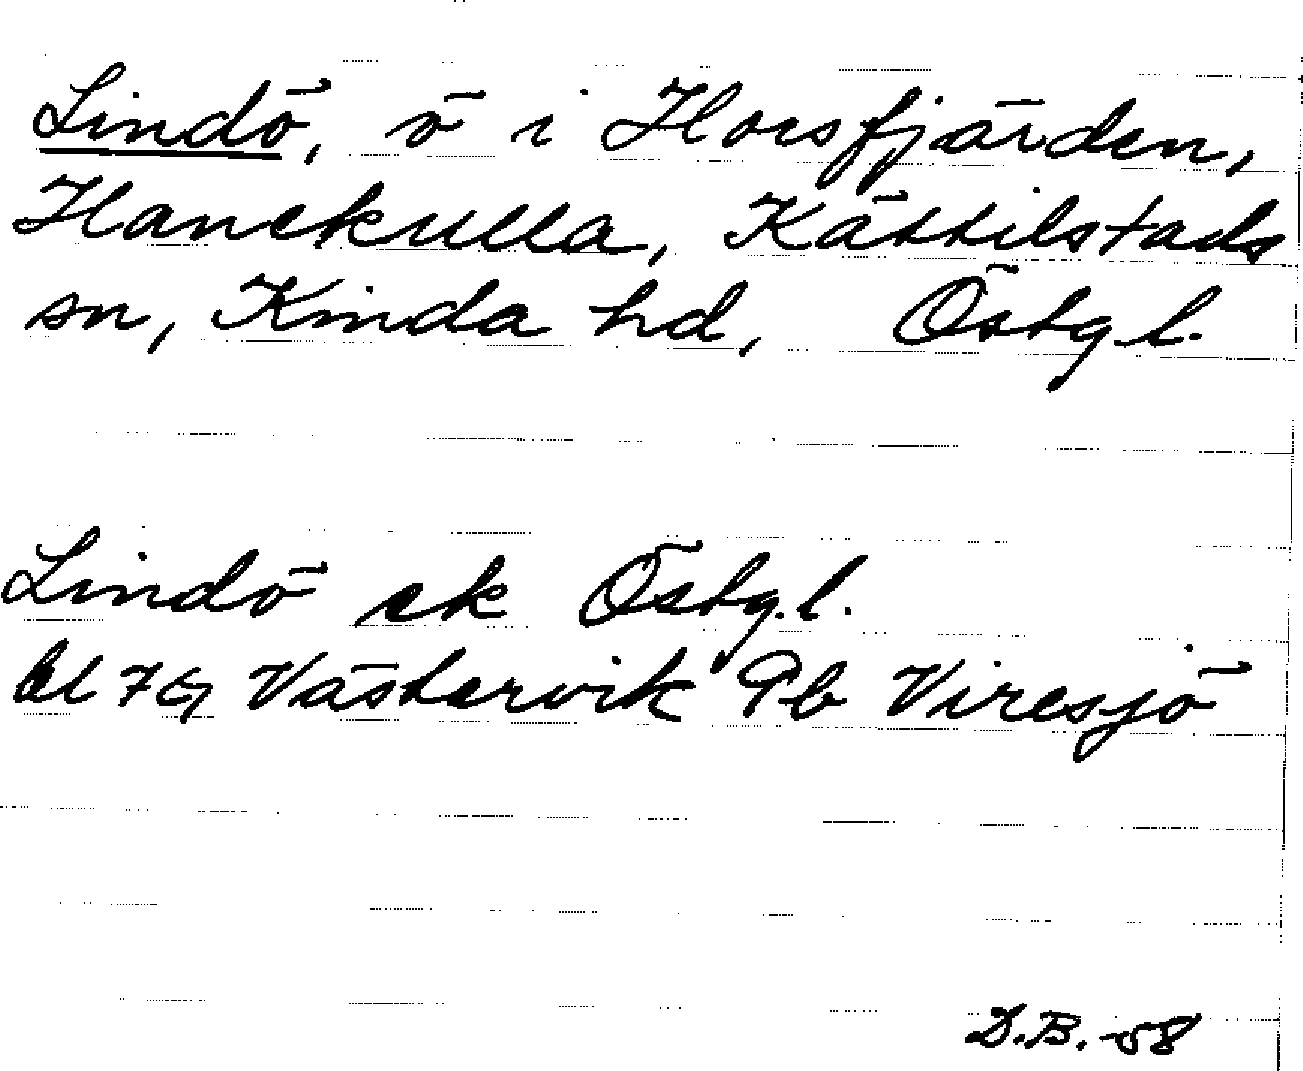 Lindö, ö i Horsfjärden,
Hanekulla, Kättilstads
sn, Kinda hd, Östgl.
Lindö ek Östg.l.
bl 7G Västervik Pb Viresjö
D.B. -58